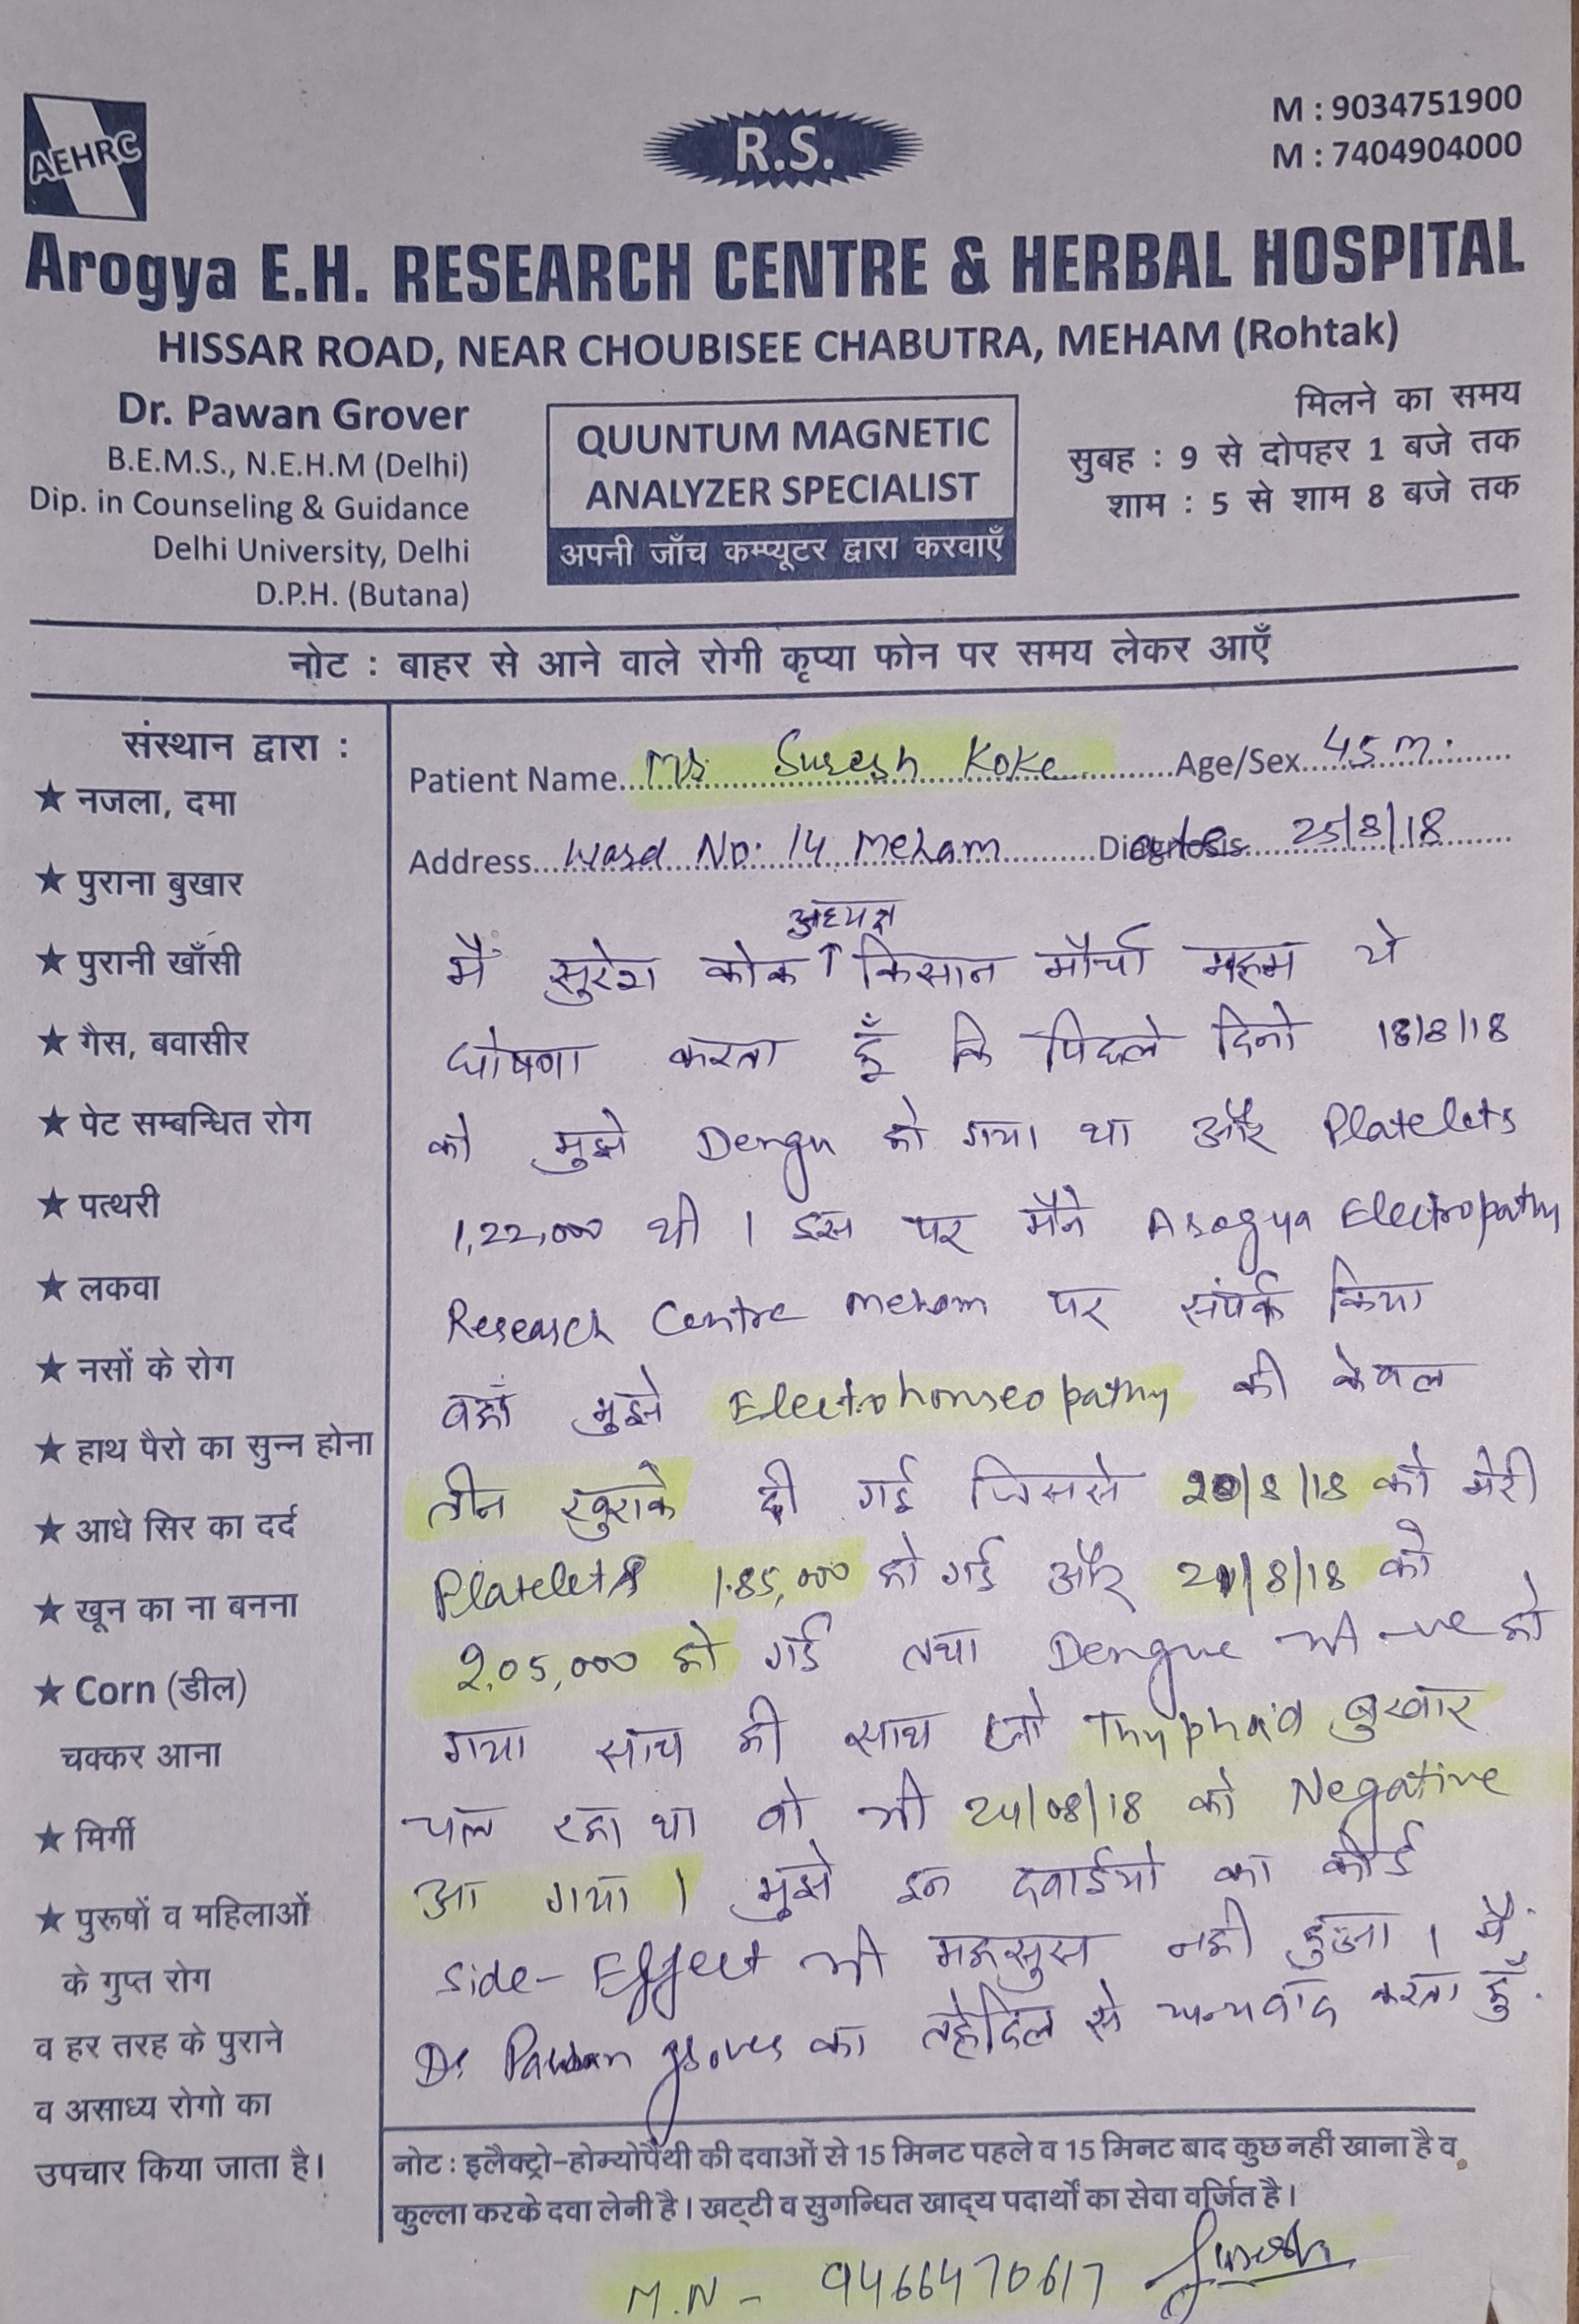 AEHRC
R.S.
M : 9034751900
M : 7404904000
Arogya E.H. RESEARCH CENTRE & HERBAL HOSPITAL
HISSAR ROAD, NEAR CHOUBISEE CHABUTRA, MEHAM (Rohtak)
Dr. Pawan Grover
B.E.M.S., N.E.H.M (Delhi)
Dip. in Counseling & Guidance
Delhi University, Delhi
D.P.H. (Butana)
QUUNTUM MAGNETIC
ANALYZER SPECIALIST
अपनी जाँच कम्प्यूटर द्वारा करवाएँ
मिलने का समय
सुबह : 9 से दोपहर 1 बजे तक
शाम : 5 से शाम 8 बजे तक
नोट : बाहर से आने वाले रोगी कृप्या फोन पर समय लेकर आएँ
संस्थान द्वारा :
★ नजला, दमा
★ पुराना बुखार
★ पुरानी खाँसी
★ गैस, बवासीर
★ पेट सम्बन्धित रोग
★ पत्थरी
★ लकवा
★ नसों के रोग
★ हाथ पैरो का सुन्न होना
★ आधे सिर का दर्द
★ खून का ना बनना
★ Corn (डील)
चक्कर आना
★ मिर्गी
★ पुरूषों व महिलाओं
के गुप्त रोग
व हर तरह के पुराने
व असाध्य रोगो का
उपचार किया जाता है।
Patient Name Mr. Suresh Koke Age/Sex 45 m.
Address Ward No. 14 Meham Date 25/8/18
अध्यक्ष
मैं सुरेश कोक ↑ किसान मौर्चा महम ये
घोषणा करता हूँ कि पिछले दिनो 18/8/18
को मुझे Dengu हो गया था और Platelets
1,22,000 थी । इस पर मैने Arogya Electropathy
Research Centre Meham पर संपर्क किया
वहाँ मुझे Electrohomeopathy की केवल
तीन खुराके दी गई जिससे 20/8/18 को मेरी
Platelets 1.85,000 हो गई और 21/8/18 को
2,05,000 हो गई तथा Dengue भी -ve हो
गया साथ ही साथ जो Thyphoid बुखार
चल रहा था वो भी 24/08/18 को Negative
आ गया । मुझे इन दवाईयो का कोई
side-Effect भी महसुस नही हुआ । मैं
Dr Pawan grover का तहेदिल से धन्यवाद करता हूँ.
नोट : इलैक्ट्रो-होम्योपैथी की दवाओं से 15 मिनट पहले व 15 मिनट बाद कुछ नहीं खाना है व
कुल्ला करके दवा लेनी है। खट्टी व सुगन्धित खाद्य पदार्थों का सेवा वर्जित है।
M.N - 9466470617 Suresh